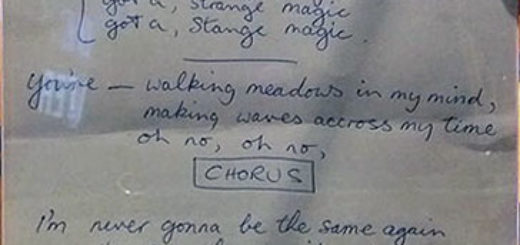 got a, strange magic
got a, Stange magic.
You're — walking meadows in my mind,
making waves accross my time
oh no, oh no,
CHORUS
I'm never gonna be the same again